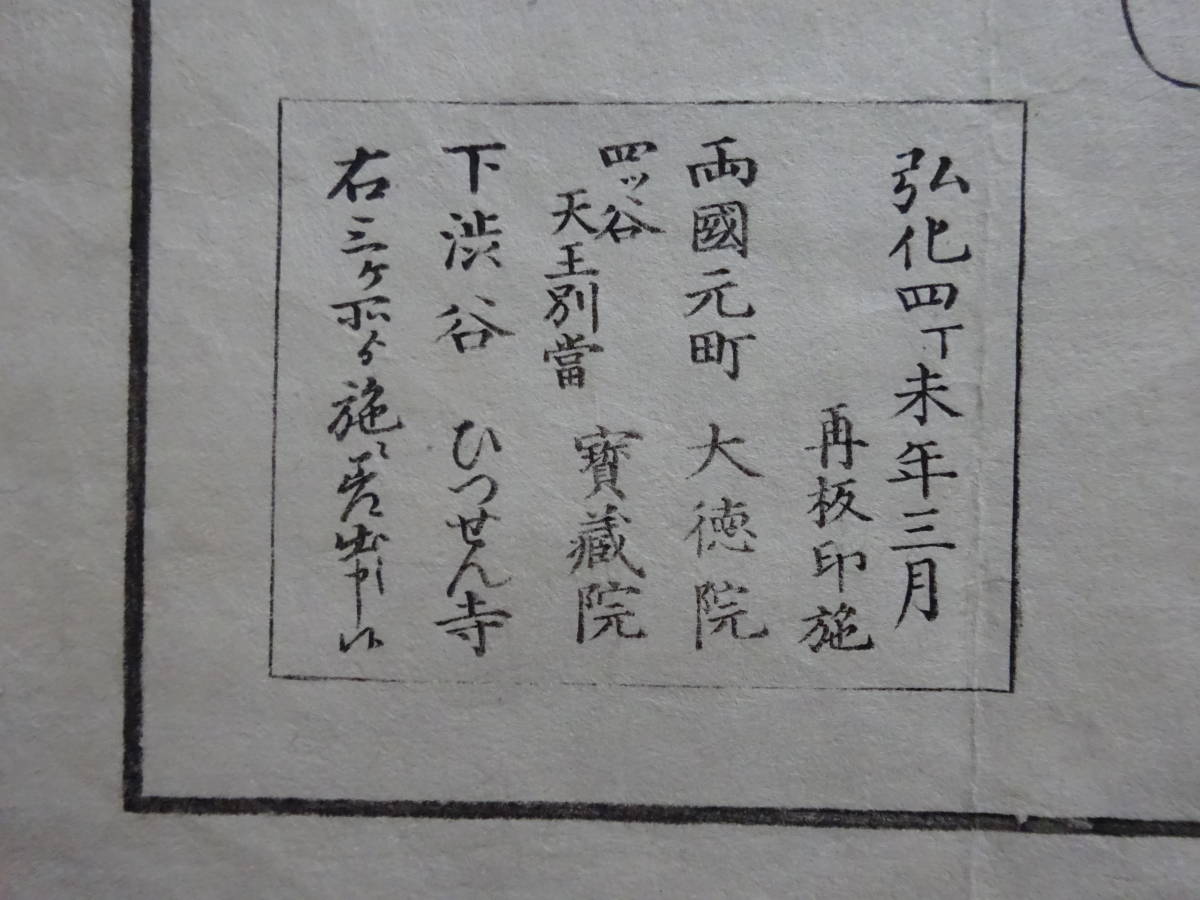 弘化四丁未年三月
再板印施
両國元町 大徳院
四ッ谷
天王別當 寳藏院
下渋谷 ひつせん寺
右三ケ所ゟ施シ差出シ申候